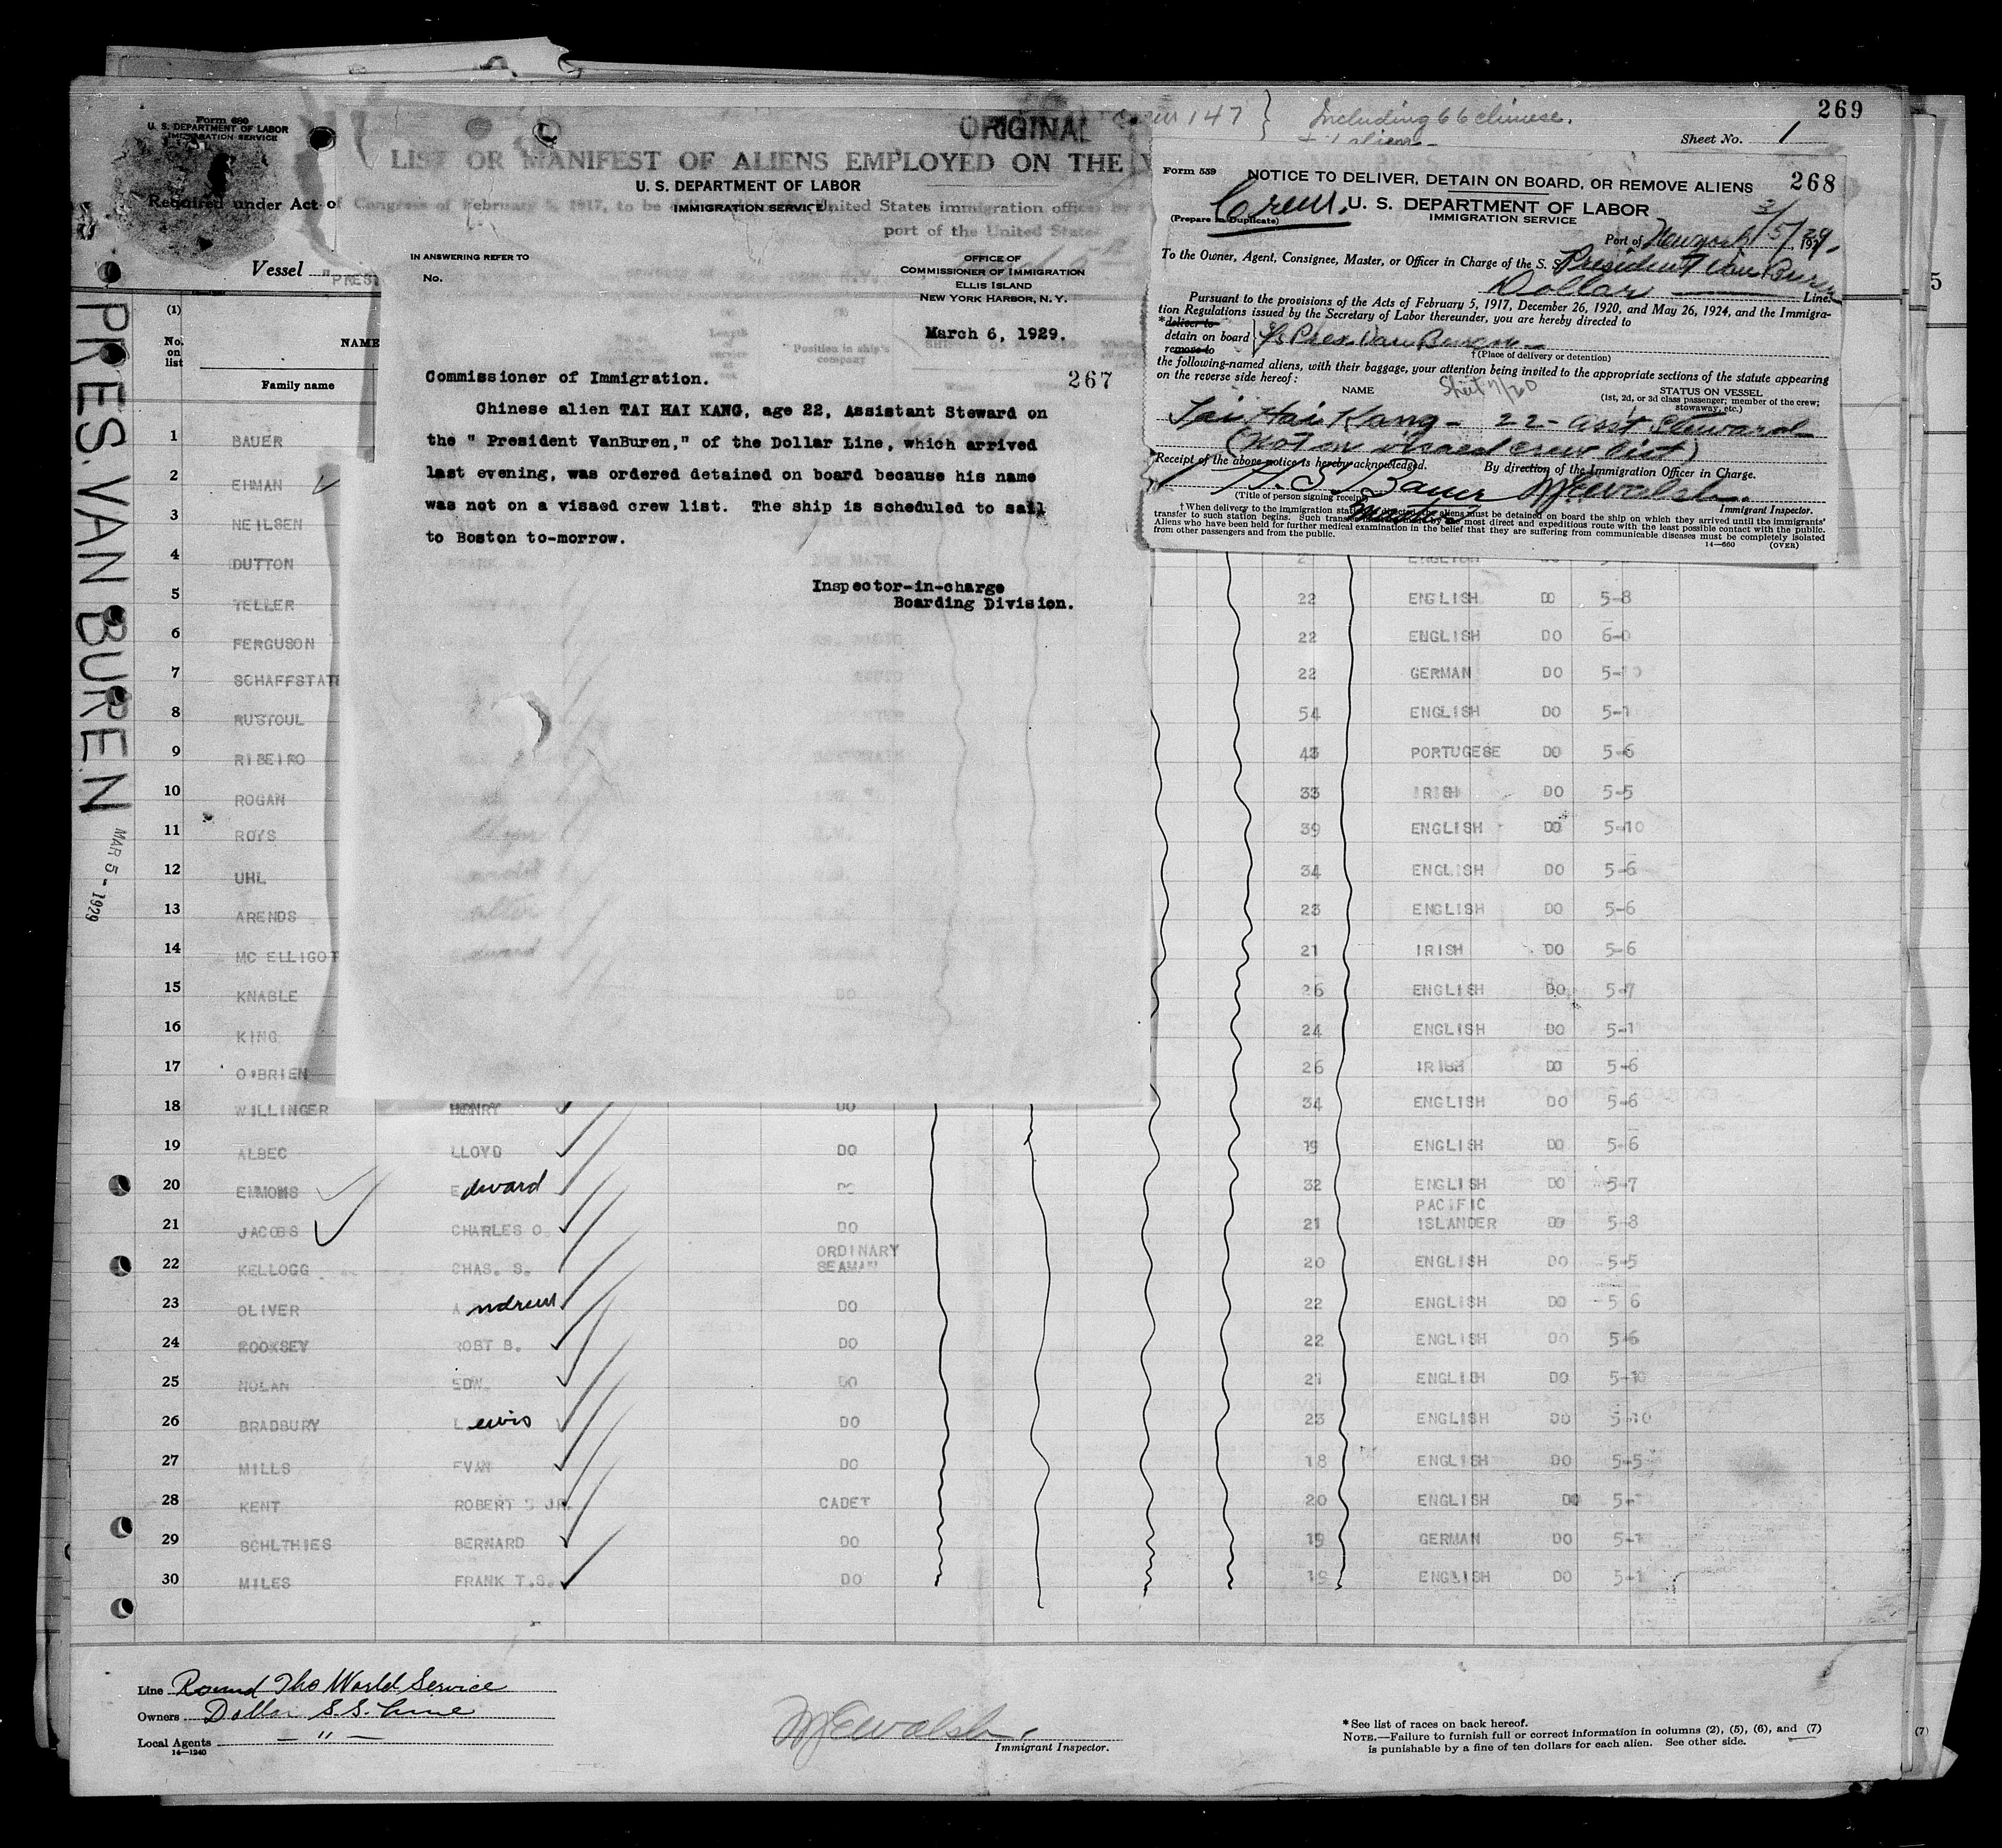 269
ORIGINAL
147 } Including 66 chinese.
Sheet No. 1
Form 680
U. S. DEPARTMENT OF LABOR
IMMIGRATION SERVICE
LIST OR MANIFEST OF ALIENS EMPLOYED ON THE
Required under Act of Congress of February 5, 1917, to be United States immigration officer by
port of the United States
Vessel "PRES
PRES. VAN BUREN
MAR 5 - 1929
U. S. DEPARTMENT OF LABOR
IMMIGRATION SERVICE
IN ANSWERING REFER TO
No.
OFFICE OF
COMMISSIONER OF IMMIGRATION
ELLIS ISLAND
NEW YORK HARBOR, N. Y.
March 6, 1929.
267
Commissioner of Immigration.
Chinese alien TAI HAI KANG, age 22, Assistant Steward on
the " President VanBuren," of the Dollar Line, which arrived
last evening, was ordered detained on board because his name
was not on a visaed crew list. The ship is scheduled to sail
to Boston to-morrow.
Inspector-in-charge
Boarding Division.
Form 559
NOTICE TO DELIVER, DETAIN ON BOARD, OR REMOVE ALIENS
268
Crew.
U. S. DEPARTMENT OF LABOR
IMMIGRATION SERVICE
(Prepare in Duplicate)
Port of New York 3/5/29, 192
To the Owner, Agent, Consignee, Master, or Officer in Charge of the S. S. President Van Buren
Dollar Line:
Pursuant to the provisions of the Acts of February 5, 1917, December 26, 1920, and May 26, 1924, and the Immigra-
tion Regulations issued by the Secretary of Labor thereunder, you are hereby directed to
*deliver to
detain on board } S/S Pres. Van Buren
remove to
†(Place of delivery or detention)
the following-named aliens, with their baggage, your attention being invited to the appropriate sections of the statute appearing
on the reverse side hereof:
NAME
Sheet 7/20
STATUS ON VESSEL
(1st, 2d, or 3d class passenger; member of the crew;
stowaway, etc.)
Tai Hai Kang - 22 - asst Steward
(not on visaed crew list)
Receipt of the above notice is hereby acknowledged.
By direction of the Immigration Officer in Charge.
Bauer
(Title of person signing receipt)
Master
Immigrant Inspector.
† When delivery to the immigration station aliens must be detained on board the ship on which they arrived until the immigrants'
transfer to such station begins. Such transfer most direct and expeditious route with the least possible contact with the public.
Aliens who have been held for further medical examination in the belief that they are suffering from communicable diseases must be completely isolated
from other passengers and from the public.
14—660 (OVER)
5
(1)
No. on list
NAME
Family name
1 BAUER
2 EHMAN
3 NEILSEN
4 DUTTON
5 TELLER 22 ENGLISH DO 5-8
6 FERGUSON 22 ENGLISH DO 6-0
7 SCHAFFSTATE 22 GERMAN DO
8 RUSTOUL 54 ENGLISH DO
9 RIBEIRO 43 PORTUGESE DO 5-6
10 ROGAN 33 IRISH DO 5-5
11 ROYS 39 ENGLISH DO 5-10
12 UHL 34 ENGLISH DO 5-6
13 ARENDS 23 ENGLISH DO 5-6
14 MC ELLIGOT 21 IRISH DO 5-6
15 KNABLE 26 ENGLISH DO 5-7
16 KING 24 ENGLISH DO
17 O'BRIEN 26 IRISH DO 5-6
18 WILLINGER HENRY DO 34 ENGLISH DO 5-6
19 ALBEC LLOYD DO 19 ENGLISH DO 5-6
20 EMMONS Edward DO 32 ENGLISH DO 5-7
21 JACOBS CHARLES O. DO 21 PACIFIC ISLANDER DO 5-8
22 KELLOGG CHAS. S. ORDINARY SEAMAN 20 ENGLISH DO 5-5
23 OLIVER Andrew DO 22 ENGLISH DO 5 6
24 ROOKSEY ROBT B. DO 22 ENGLISH DO 5-6
25 NOLAN EDW. DO 21 ENGLISH DO 5-10
26 BRADBURY Lewis DO 23 ENGLISH DO 5-10
27 MILLS EVAN DO 18 ENGLISH DO 5-5
28 KENT ROBERT S JR. CADET 20 ENGLISH DO
29 SCHLTHIES BERNARD DO 19 GERMAN DO
30 MILES FRANK T.S. DO ENGLISH DO
Line Round The World Service
Owners Dollar S.S. Line
Local Agents — " —
14—1240
Immigrant Inspector.
* See list of races on back hereof.
NOTE.—Failure to furnish full or correct information in columns (2), (5), (6), and (7)
is punishable by a fine of ten dollars for each alien. See other side.
(7)